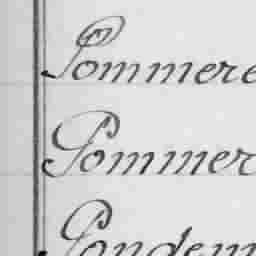 Pommere
Pommer
Pondem